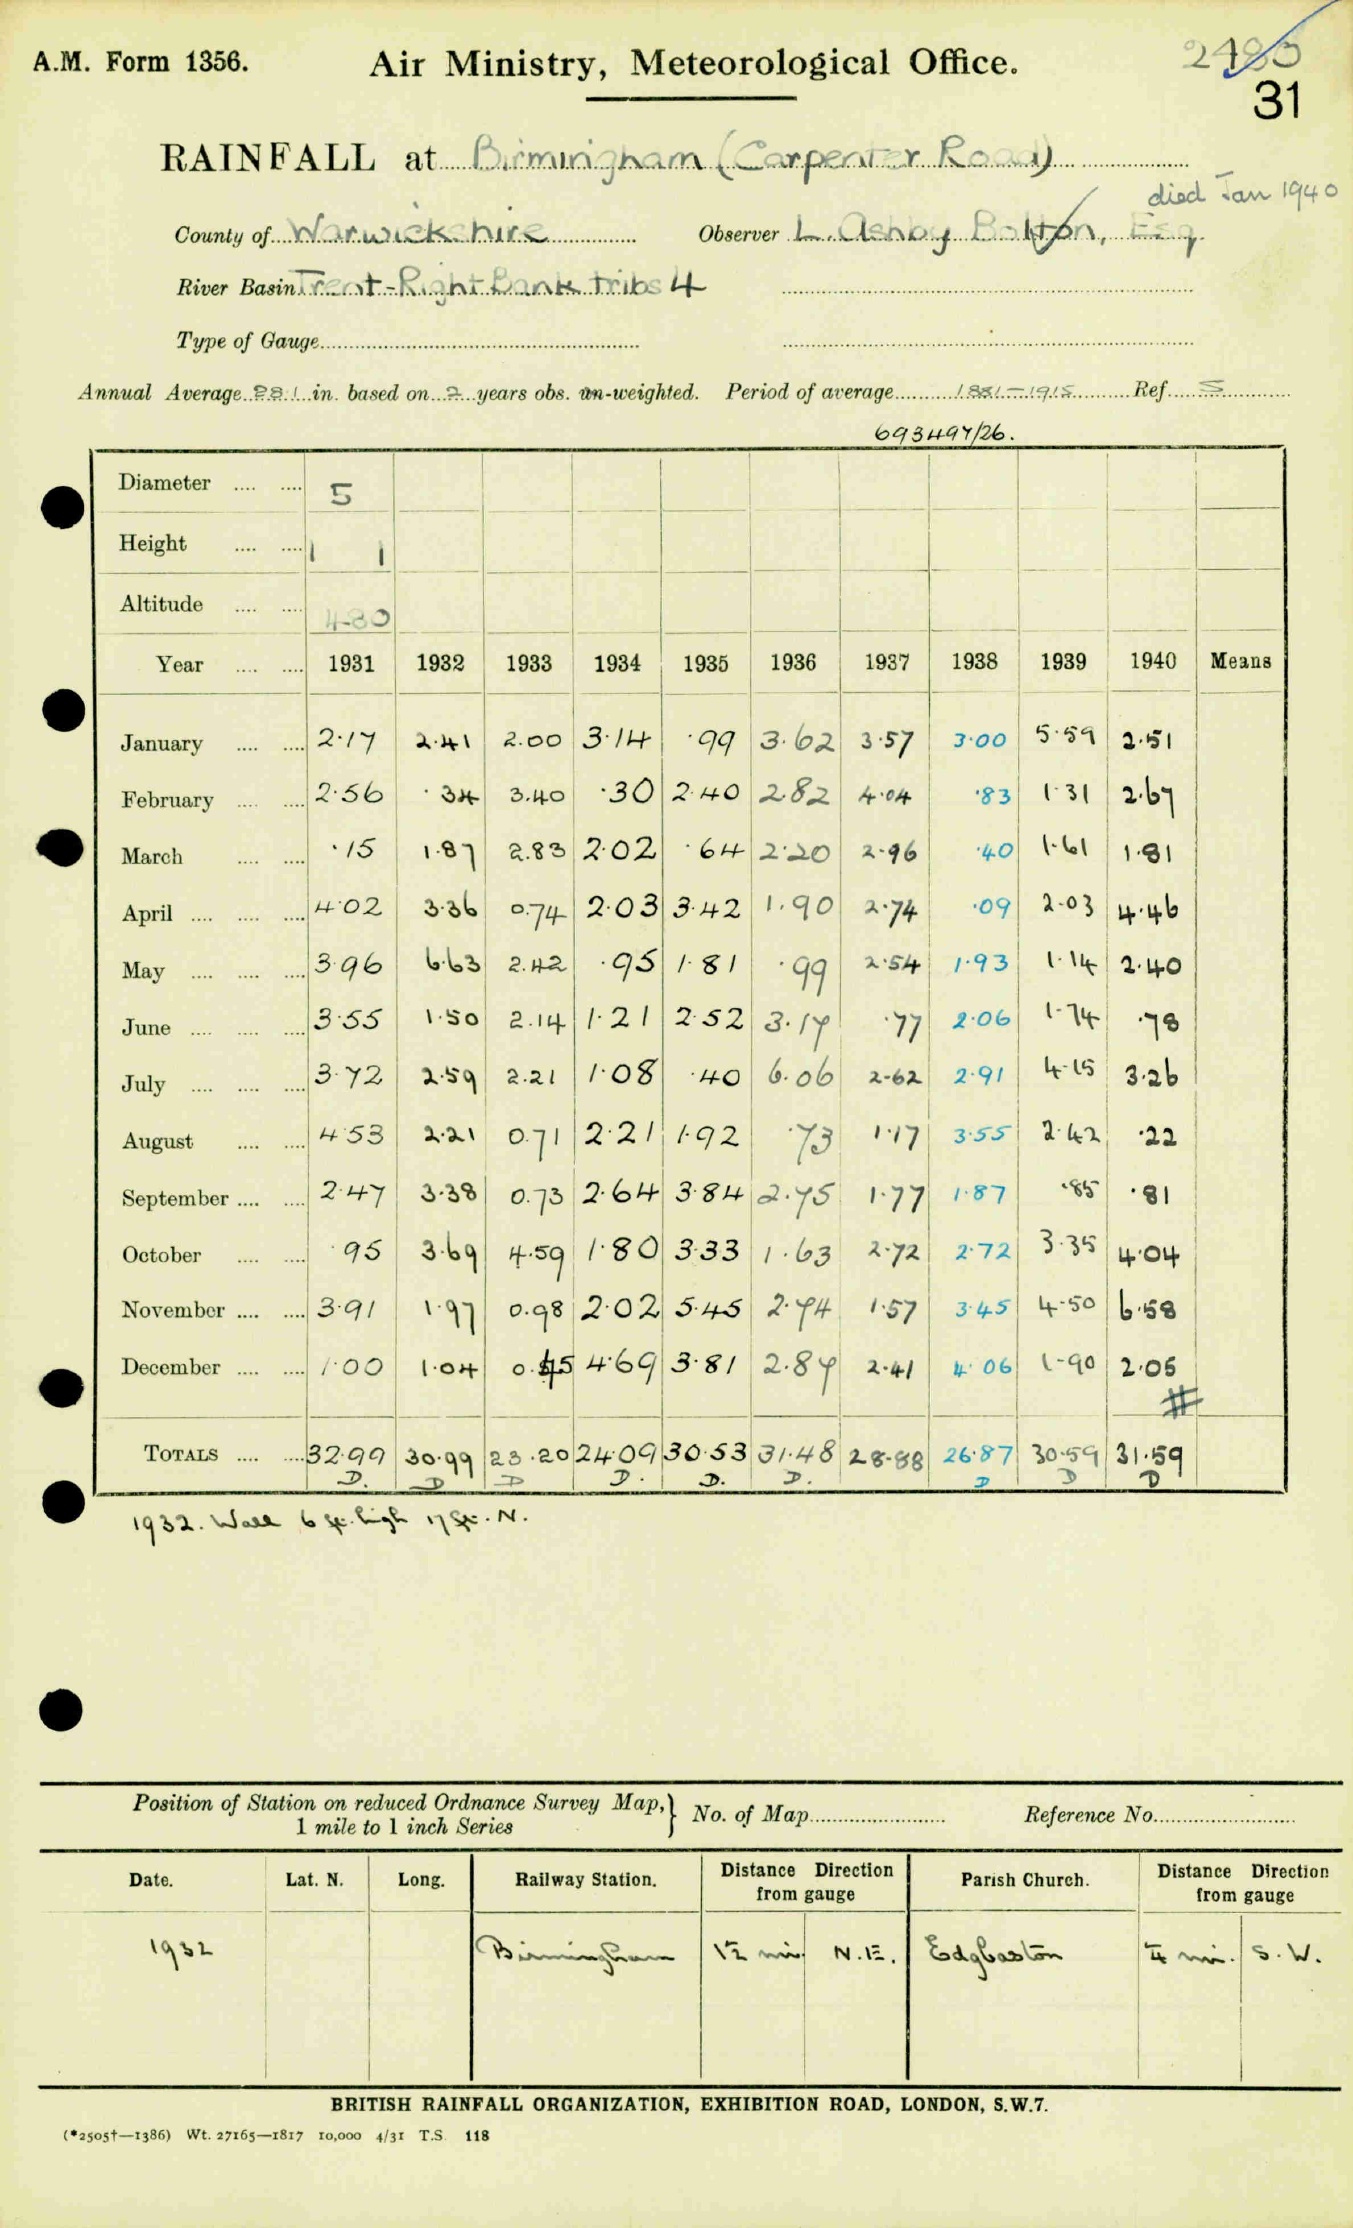 A.M. Form 1356. Air Ministry, Meteorological Office.
31
RAINFALL at Birmingham (Carpenter Road)
died Jan 1940
County of Warwickshire Observer L. Ashby Bolton, Esq.
River Basin Trent-Right Bank tribs 4
Type of Gauge
Annual Average 28.1 in. based on 2 years obs. un-weighted. Period of average 1881-1915 Ref. S
693497/26.
Diameter 5
Height 1 1
Altitude 480
Year 1931 1932 1933 1934 1935 1936 1937 1938 1939 1940 Means
January 2.17 2.41 2.00 3.14 .99 3.62 3.57 3.00 5.59 2.51
February 2.56 .34 3.40 .30 2.40 2.82 4.04 .83 1.31 2.67
March .15 1.87 2.83 2.02 .64 2.20 2.96 .40 1.61 1.81
April 4.02 3.36 0.74 2.03 3.42 1.90 2.74 .09 2.03 4.46
May 3.96 6.63 2.42 .95 1.81 .99 2.54 1.93 1.14 2.40
June 3.55 1.50 2.14 1.21 2.52 3.17 .77 2.06 1.74 .78
July 3.72 2.59 2.21 1.08 .40 6.06 2.62 2.91 4.15 3.26
August 4.53 2.21 0.71 2.21 1.92 .73 1.17 3.55 2.42 .22
September 2.47 3.38 0.73 2.64 3.84 2.75 1.77 1.87 .85 .81
October .95 3.69 4.59 1.80 3.33 1.63 2.72 2.72 3.35 4.04
November 3.91 1.97 0.98 2.02 5.45 2.74 1.57 3.45 4.50 6.58
December 1.00 1.04 0.45 4.69 3.81 2.87 2.41 4.06 1.90 2.05
#
TOTALS 32.99 30.99 23.20 24.09 30.53 31.48 28.88 26.87 30.59 31.59
D. D D D. D. D. D D D
1932. Wall 6 ft. high 17 ft. N.
Position of Station on reduced Ordnance Survey Map, 1 mile to 1 inch Series } No. of Map Reference No.
Date. Lat. N. Long. Railway Station. Distance Direction from gauge Parish Church. Distance Direction from gauge
1932 Birmingham 1½ mi. N.E. Edgbaston ¼ mi. S.W.
BRITISH RAINFALL ORGANIZATION, EXHIBITION ROAD, LONDON, S.W.7.
(*2505†—1386) Wt. 27165—1817 10,000 4/31 T.S. 118